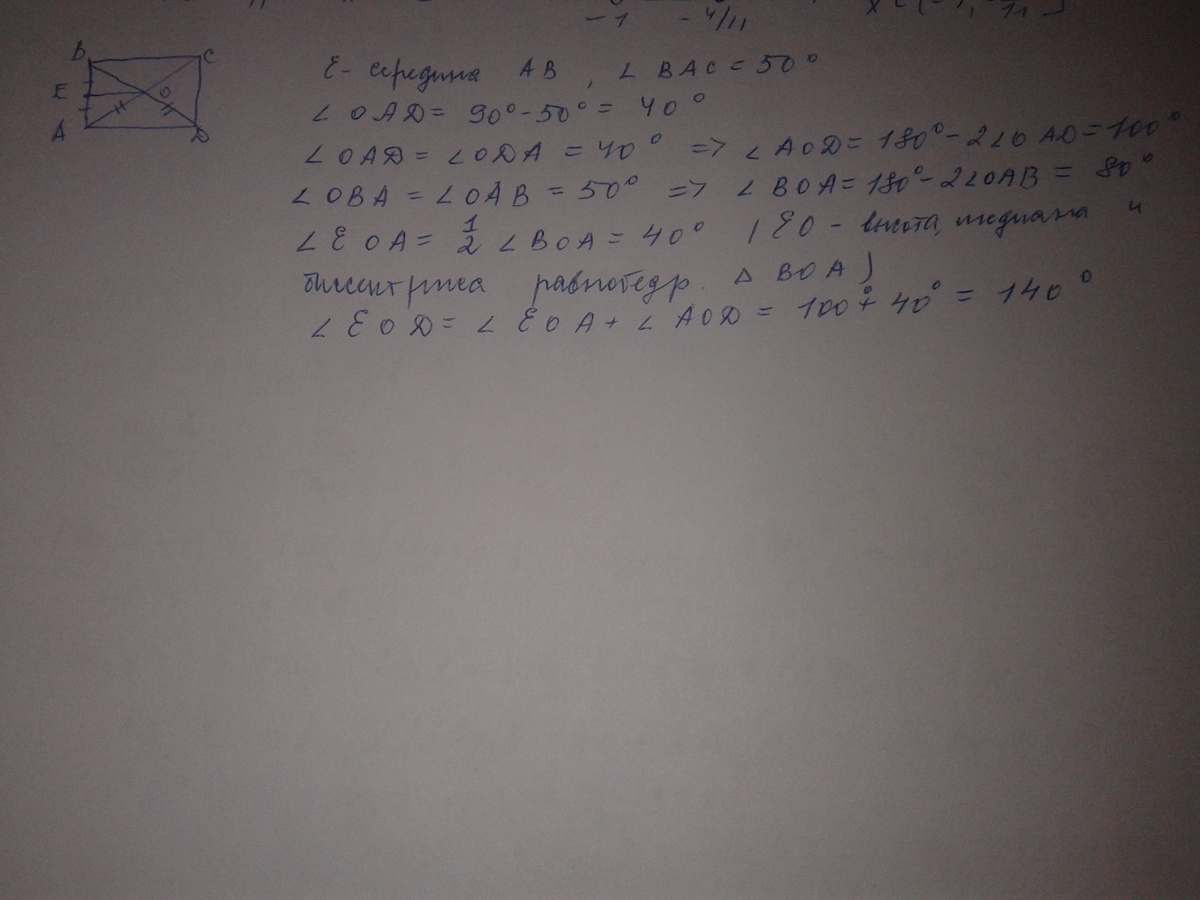 -1 -4/11
B C
E O
A D
E - середина AB, ∠ BAC = 50°
∠ OAD = 90° - 50° = 40°
∠ OAD = ∠ ODA = 40° => ∠ AOD = 180° - 2∠OAD = 100°
∠ OBA = ∠ OAB = 50° => ∠ BOA = 180° - 2∠OAB = 80°
∠ EOA = 1/2 ∠ BOA = 40° (EO - высота, медиана и
биссектриса равнобедр. △ BOA)
∠ EOD = ∠ EOA + ∠ AOD = 100° + 40° = 140°